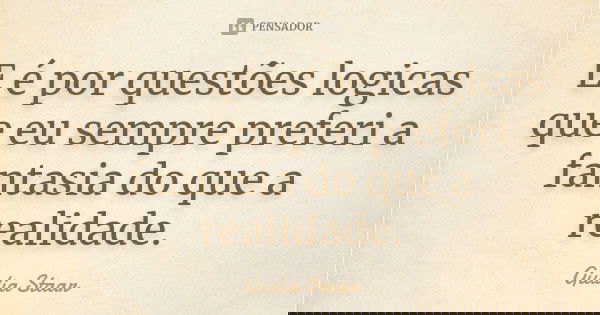 PENSADOR
E é por questões logicas
que eu sempre preferi a
fantasia do que a
realidade.
Giulia Staar